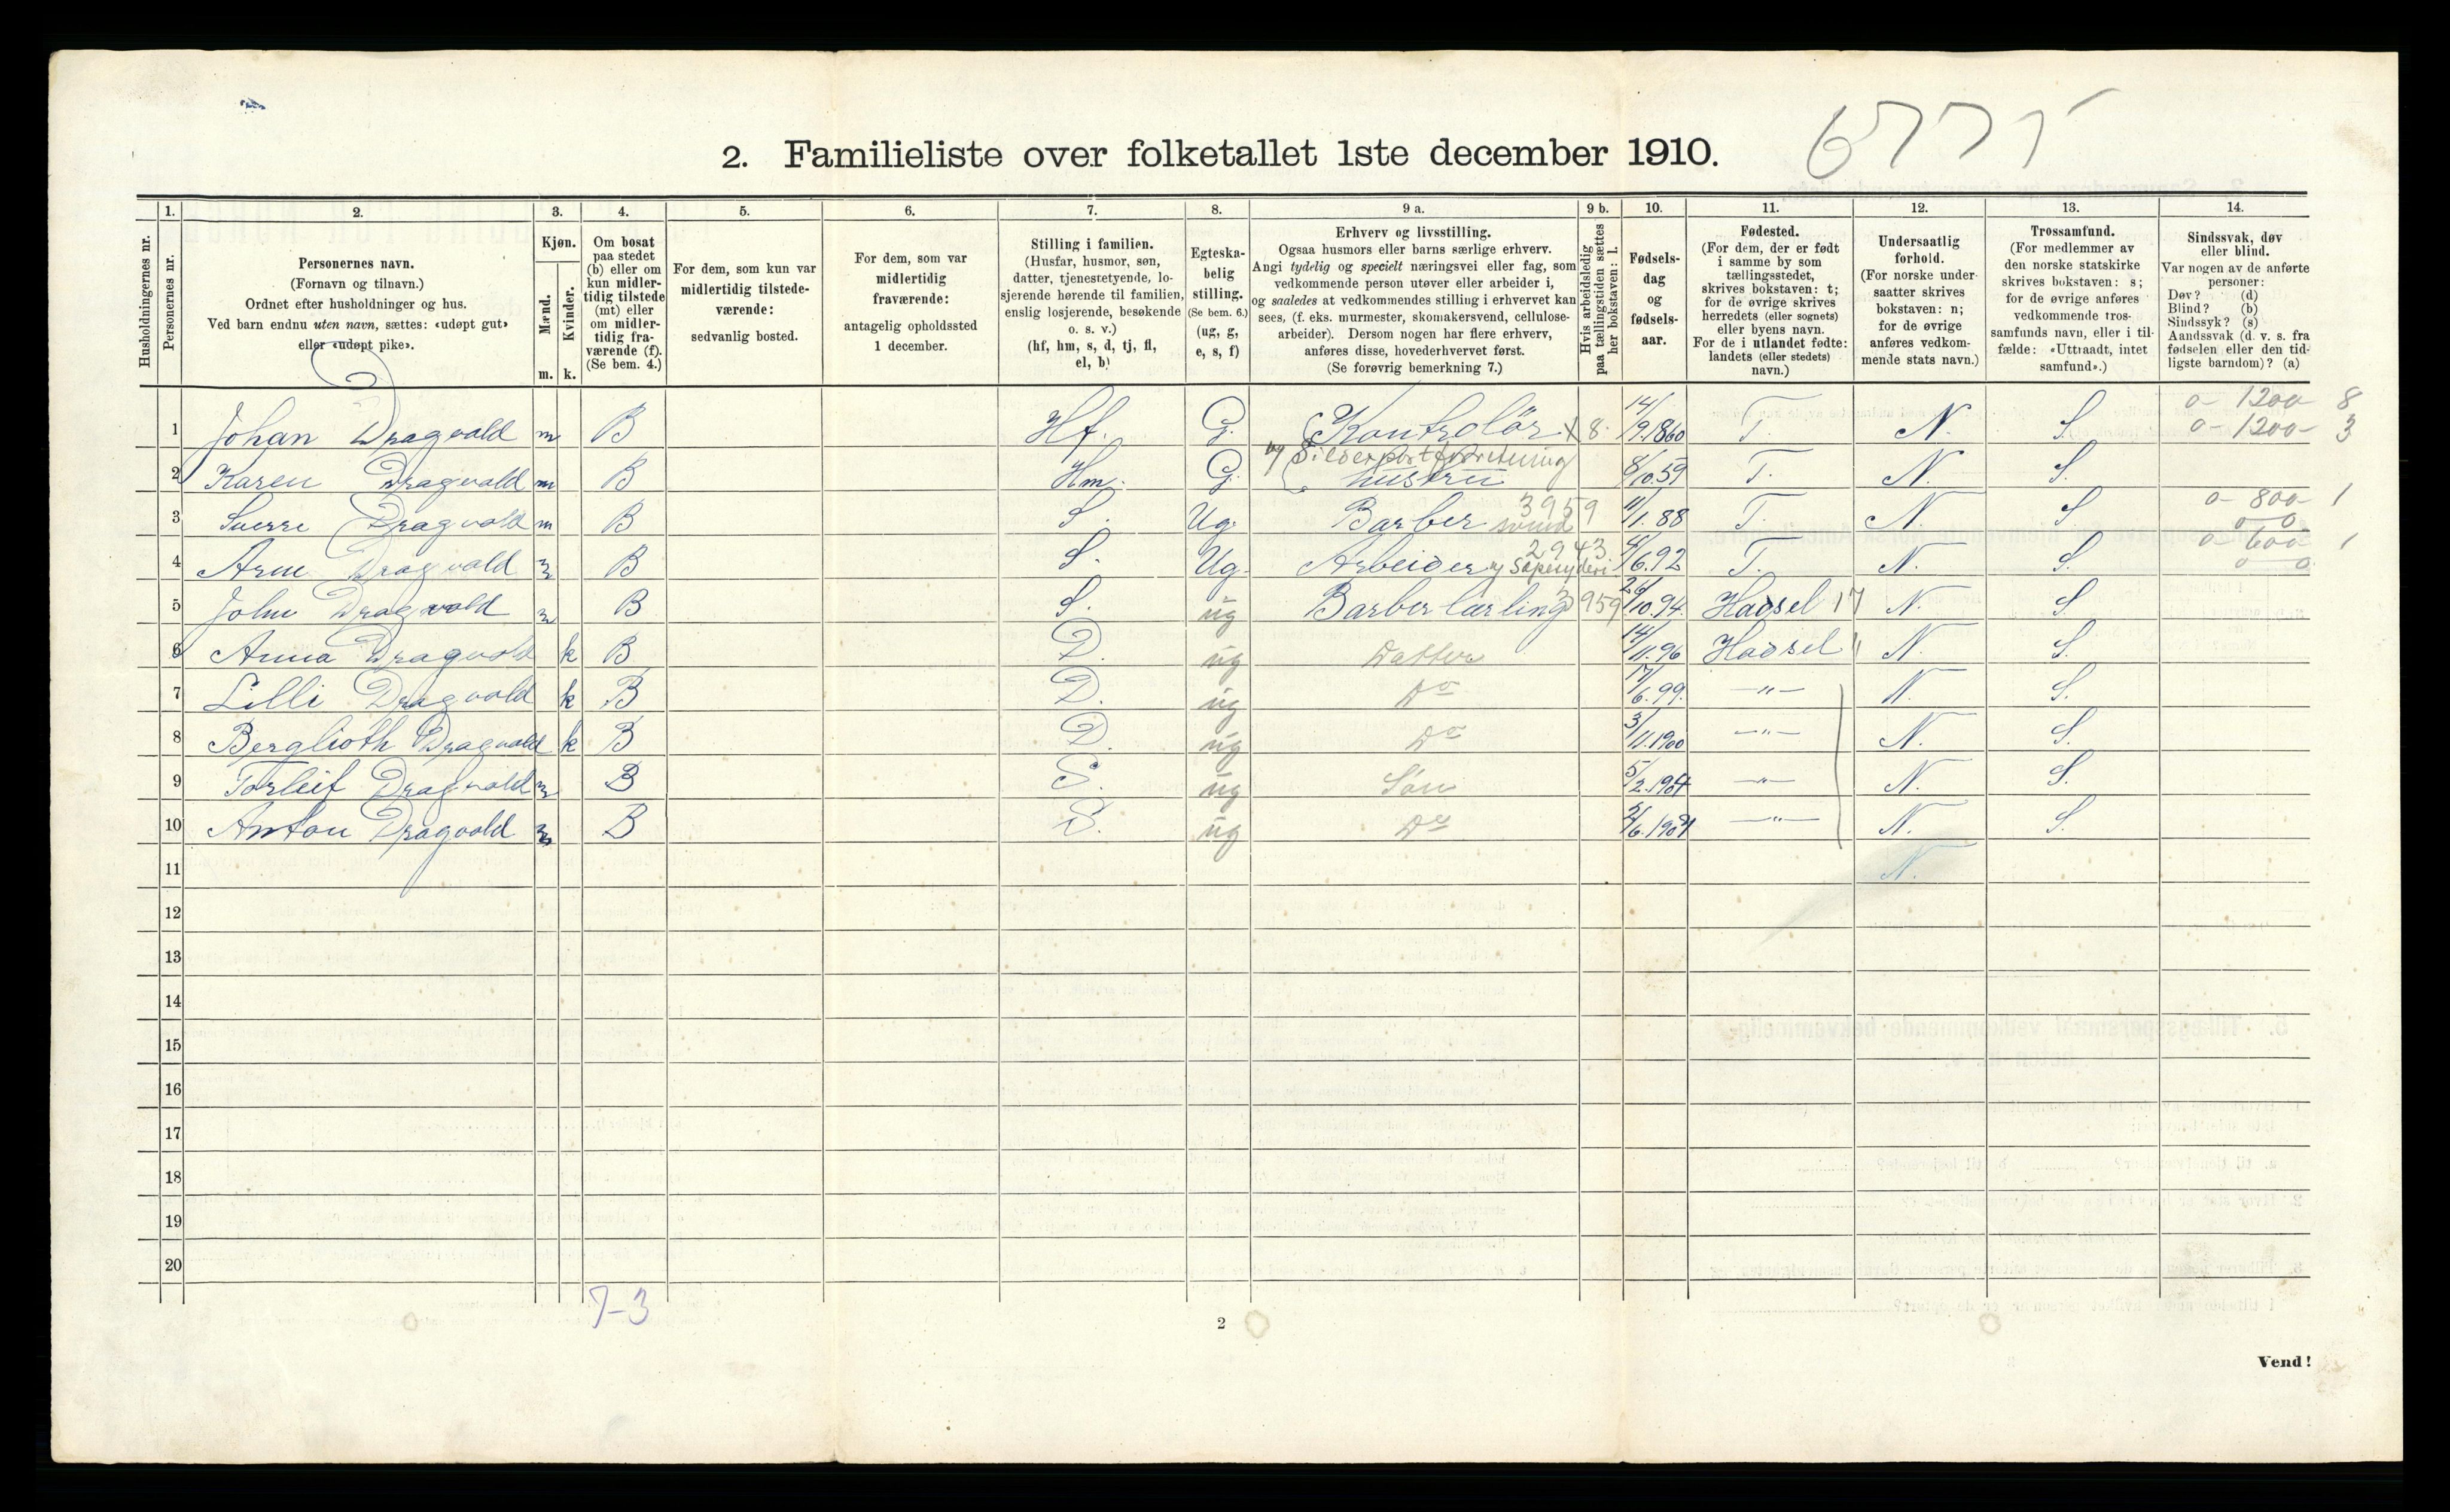 6775
2. Familieliste over folketallet 1ste december 1910.
1. 2. 3. 4. 5. 6. 7. 8. 9 a. 9 b. 10. 11. 12. 13. 14.
Husholdningernes nr.
Personernes nr.
Personernes navn.
(Fornavn og tilnavn.)
Ordnet efter husholdninger og hus.
Ved barn endnu uten navn, sættes: «udøpt gut»
eller «udøpt pike».
Kjøn.
Mænd.
Kvinder.
m. k.
Om bosat
paa stedet
(b) eller om
kun midler-
tidig tilstede
(mt) eller
om midler-
tidig fra-
værende (f).
(Se bem. 4.)
For dem, som kun var
midlertidig tilstede-
værende:
sedvanlig bosted.
For dem, som var
midlertidig
fraværende:
antagelig opholdssted
1 december.
Stilling i familien.
(Husfar, husmor, søn,
datter, tjenestetyende, lo-
sjerende hørende til familien,
enslig losjerende, besøkende
o. s. v.)
(hf, hm, s, d, tj, fl,
el, b)
Egteska-
belig
stilling.
(Se bem. 6.)
(ug, g,
e, s, f)
Erhverv og livsstilling.
Ogsaa husmors eller barns særlige erhverv.
Angi tydelig og specielt næringsvei eller fag, som
vedkommende person utøver eller arbeider i,
og saaledes at vedkommendes stilling i erhvervet kan
sees, (f. eks. murmester, skomakersvend, cellulose-
arbeider). Dersom nogen har flere erhverv,
anføres disse, hovederhvervet først.
(Se forøvrig bemerkning 7.)
Hvis arbeidsledig
paa tællingstiden sættes
her bokstaven: l.
Fødsels-
dag
og
fødsels-
aar.
Fødested.
(For dem, der er født
i samme by som
tællingsstedet,
skrives bokstaven: t;
for de øvrige skrives
herredets (eller sognets)
eller byens navn.
For de i utlandet fødte:
landets (eller stedets)
navn.)
Undersaatlig
forhold.
(For norske under-
saatter skrives
bokstaven: n;
for de øvrige
anføres vedkom-
mende stats navn.)
Trossamfund.
(For medlemmer av
den norske statskirke
skrives bokstaven: s;
for de øvrige anføres
vedkommende tros-
samfunds navn, eller i til-
fælde: «Uttraadt, intet
samfund».)
Sindssvak, døv
eller blind.
Var nogen av de anførte
personer:
Døv? (d)
Blind? (b)
Sindssyk? (s)
Aandssvak (d. v. s. fra
fødselen eller den tid-
ligste barndom)? (a)
0- 1200 8
1 Johan Dragvold m B Hf. G. Kontrolör x 8. 14/9.1860 T. N. S. 0- 1200- 3
2 Karen Dragvold m B Hm. G. hustru 8/10.59 T. N. S.
3 Sverre Dragvold m B S. Ug. Barber svend 3959 11/1.88 T. N. S 0- 800- 1
0 0
4 Arne Dragvold m B S. Ug. Arbeider 2943 4/6.92 T. N. S. 0- 600- 1
0 0
5 John Dragvold m B S. ug Barberlærling 3959 26/10.94. Hadsel 17 N. S.
6 Anna Dragvold k B D. ug Datter 14/11.96 Hadsel " N. S.
7 Lilli Dragvold k B D. ug Do 17/6.99. —"— N S.
8 Berglioth Dragvold k B D. ug Do 3/11.1900 —"— N. S.
9 Torleif Dragvold m B S. ug Søn 5/2.1904 —"— N. S.
10 Anton Dragvold m B S. ug Do 2/6.1907 —"— N. S.
11 N.
12
13
14
15
16
17
18
19
20
7-3
2
Vend!